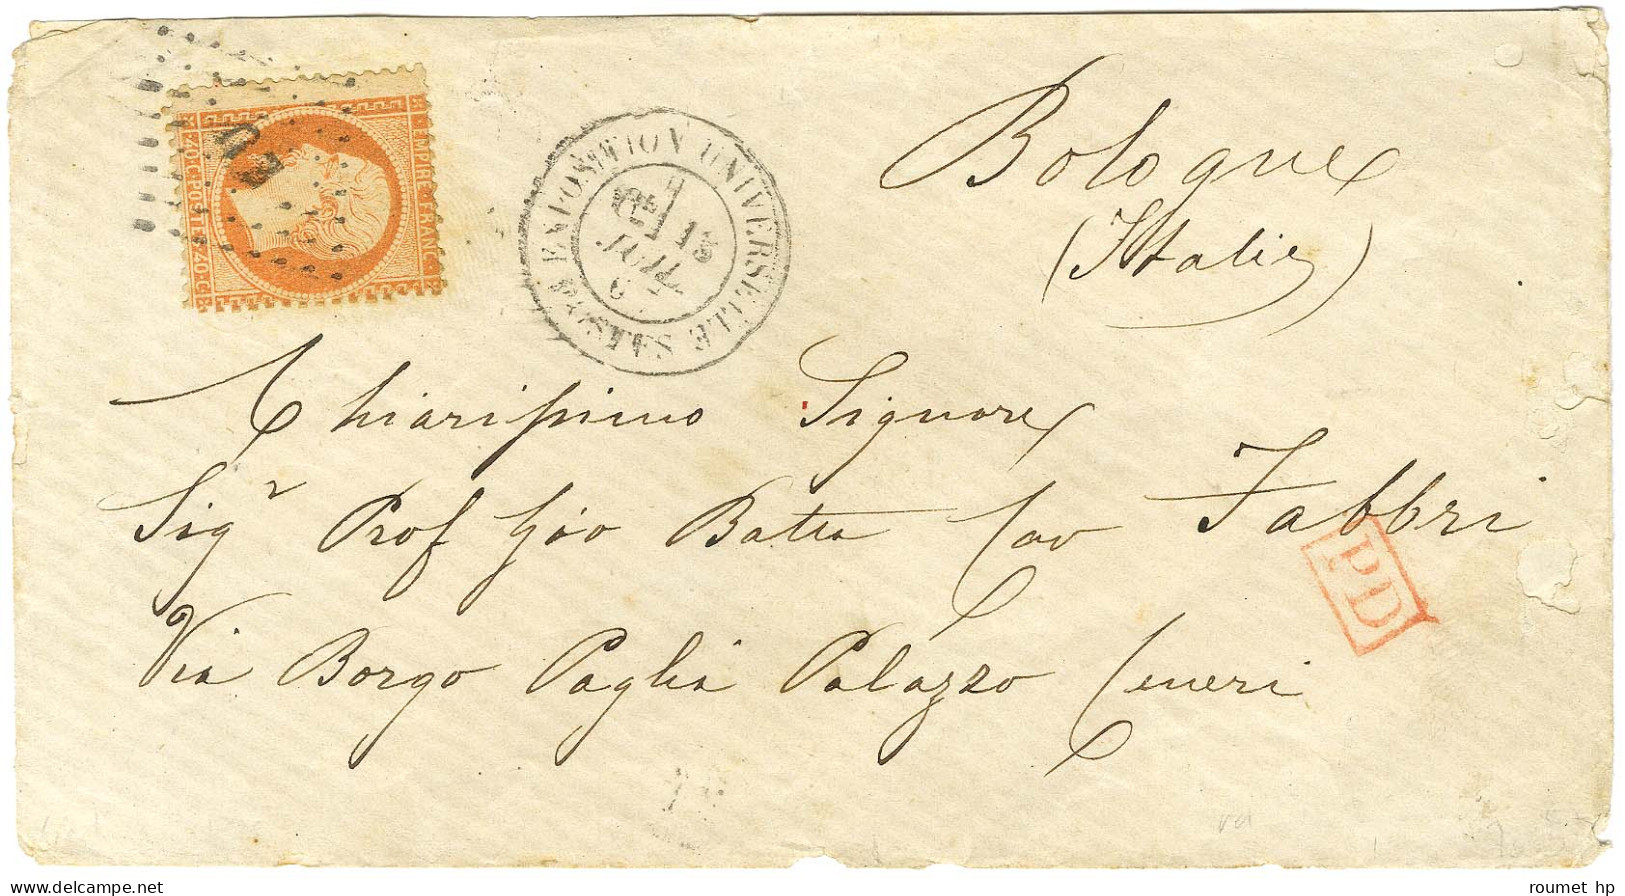 EU
EMPIRE·FRANC·
40·C·POSTES·40·C
EXPOSITION UNIVERSELLE
JUIL
Bologne
(Italie)
Chiarissimo Signore
Sigr Prof Gio Batta Cav Fabbri
PD
Via Borgo Paglia Palazzo Ceneri
delcampe.net
roumet hp